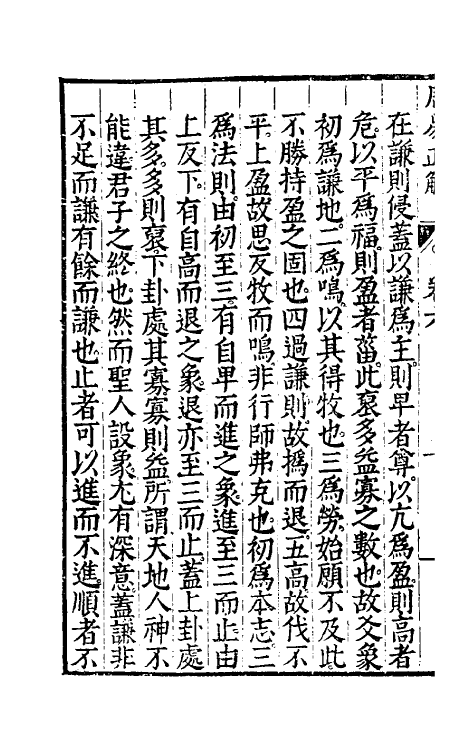 周易正解　卷六
在謙則侵蓋以謙爲主則卑者尊以亢爲盈則高者
危以平爲福則盈者菑此裒多益寡之數也故爻象
初爲謙地二爲鳴以其得牧也三爲勞始願不及此
不勝持盈之固也四過謙則故撝而退五高故伐不
平上盈故思反牧而鳴非行師弗克也初爲本志三
爲法則由初至三有自卑而進之象進至三而止由
上反下有自高而退之象退亦至三而止蓋上卦處
其多多則裒下卦處其寡寡則益所謂天地人神不
能違君子之終也然而聖人設象尤有深意蓋謙非
不足而謙有餘而謙也止者可以進而不進順者不